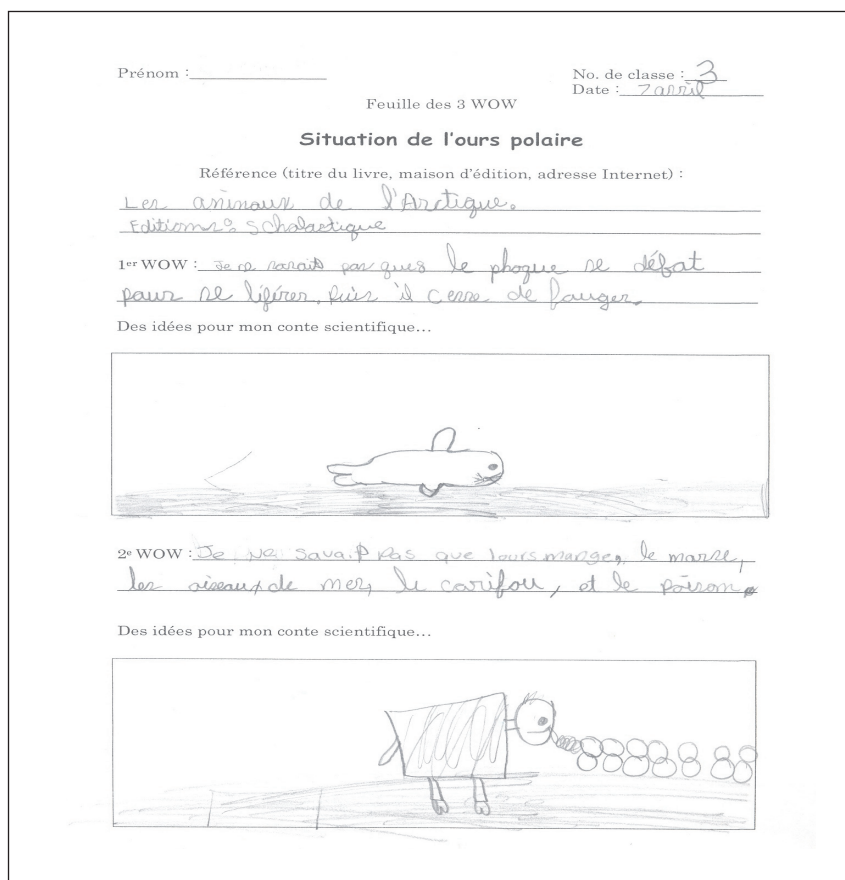 Prénom :
No. de classe : 3
Date : 7 avril
Feuille des 3 WOW
Situation de l'ours polaire
Référence (titre du livre, maison d'édition, adresse Internet) :
Les animaux de l'Arctique.
Editions: Scholastique
1er WOW : Je ne savait pas ques le phoque se défat
pour se liférer. puis il cesse de fouger.
Des idées pour mon conte scientifique...
2e WOW : Je ne savait pas que lours manger, le marse,
les oiseaux de mer, le carifou, et le poisson.
Des idées pour mon conte scientifique...